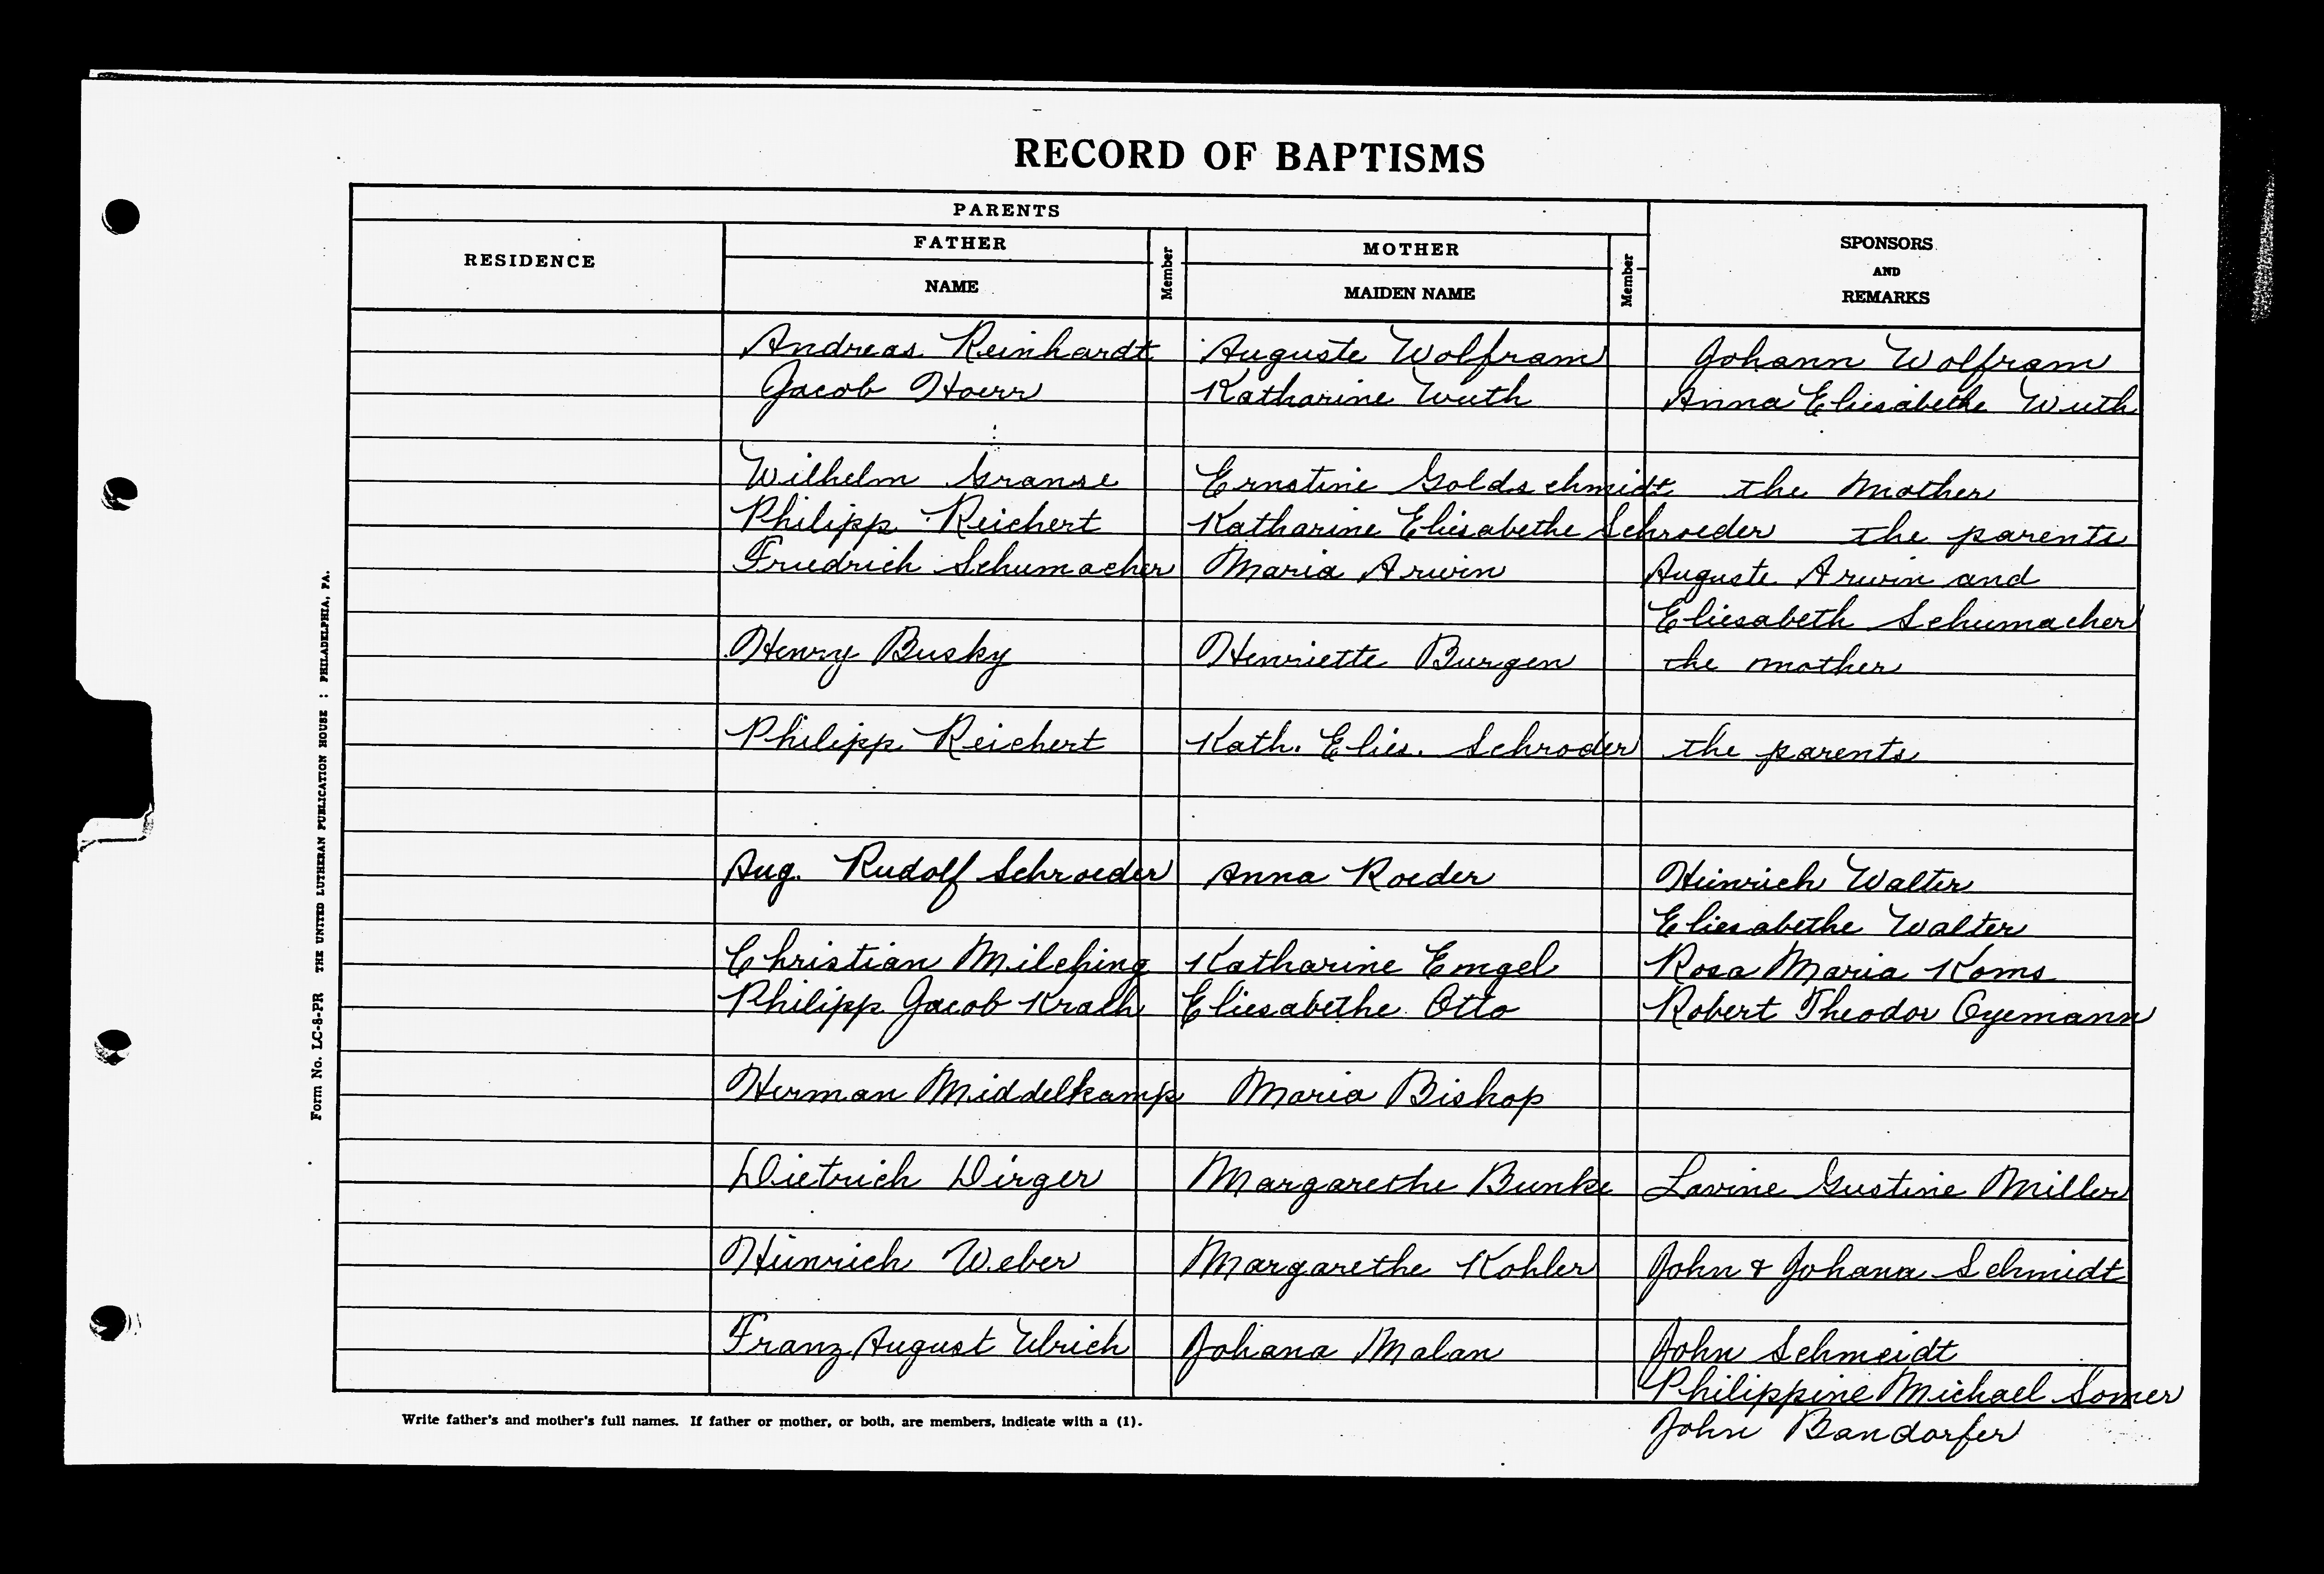 RECORD OF BAPTISMS
PARENTS
RESIDENCE FATHER Member MOTHER Member SPONSORS AND REMARKS
NAME MAIDEN NAME
Andreas Reinhardt Auguste Wolfram Johann Wolfram
Jacob Hoerr Katharine Wuth Anna Eliesabethe Wuth
Wilhelm Granse Ernstine Goldschmidt the Mother
Philipp Reichert Katharine Eliesabethe Schroeder the parents
Friedrich Schumacher Maria Arwin Auguste Arwin and
Eliesabeth Schumacher
Henry Busky Henriette Burgen the mother
Philipp Reichert Kath. Elies. Schroder the parents
Aug. Rudolf Schroeder Anna Roeder Heinrich Walter
Eliesabethe Walter
Christian Milching Katharine Emgel Rosa Maria Koms
Philipp Jacob Krath Eliesabethe Otto Robert Theodor Oyemann
Herman Middelkamp Maria Bishop
Dietrich Dirger Margarethe Bunke Lavine Gustine Miller
Heinrich Weber Margarethe Kohler John & Johana Schmidt
Franz August Ulrich Johana Malan John Schmeidt
Philippine Michael Somer
John Bandorfer
Write father's and mother's full names. If father or mother, or both, are members, indicate with a (1).
Form No. LC-8-PR THE UNITED LUTHERAN PUBLICATION HOUSE : PHILADELPHIA, PA.